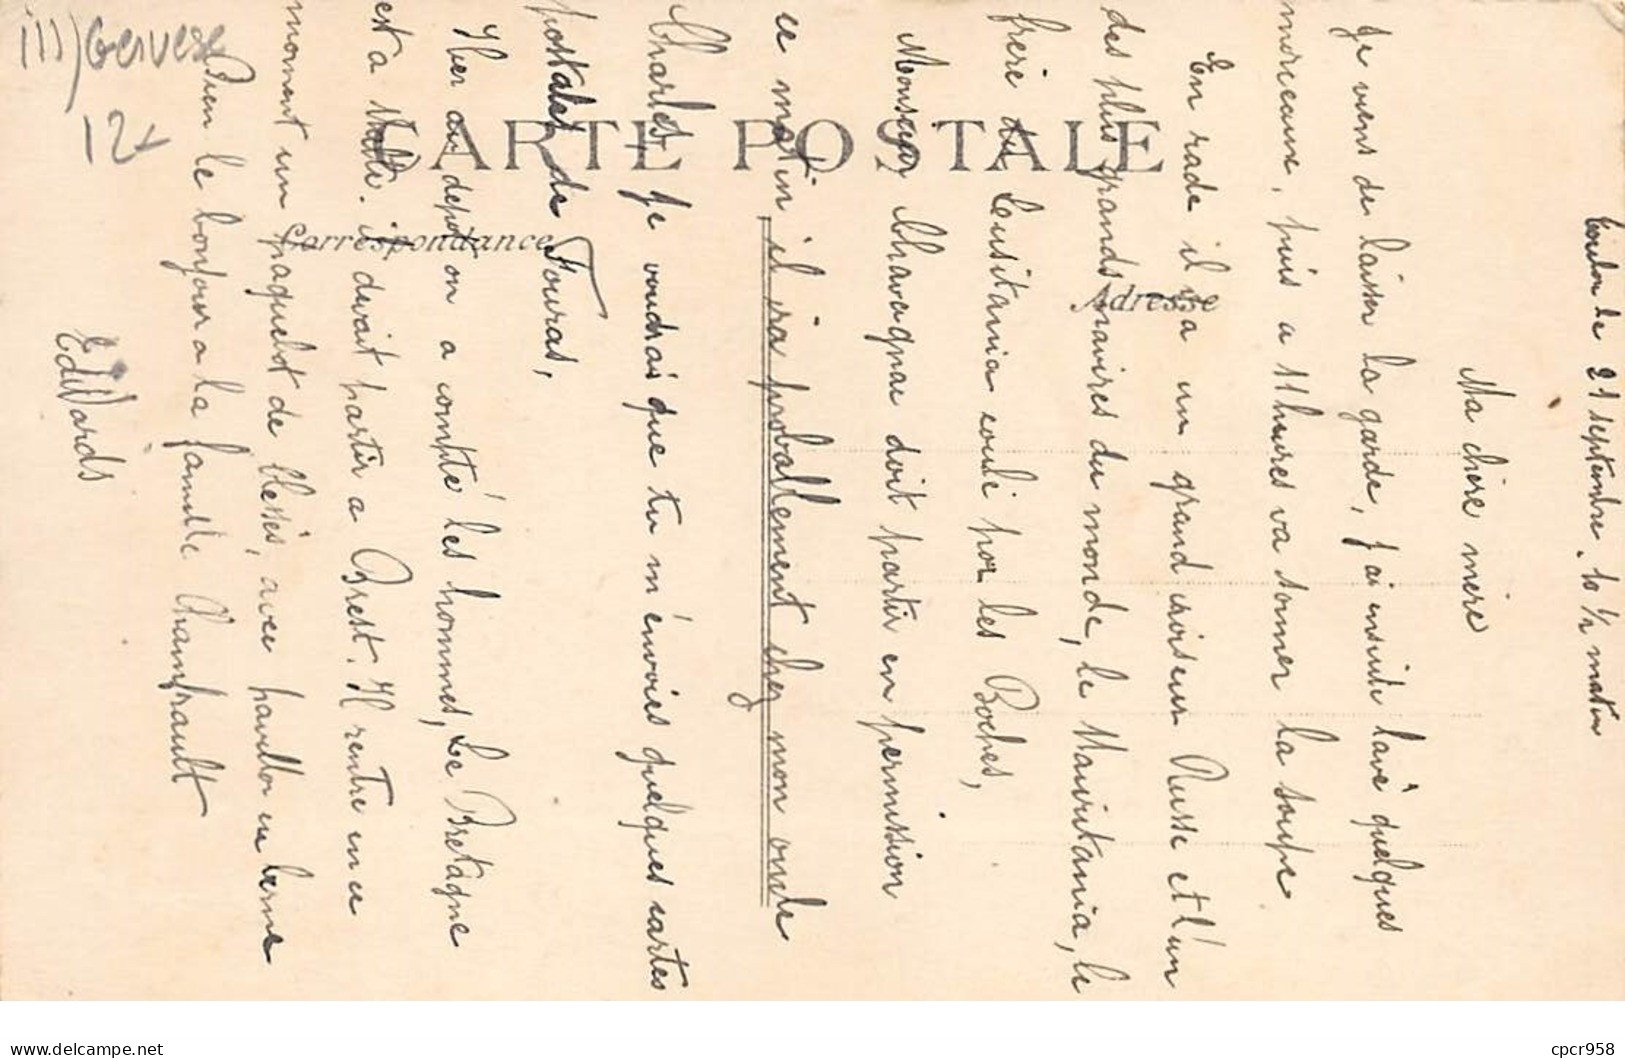 Toulon le 21 septembre. 10 1/2 matin
Ma chère mère
Je viens de laisser la garde, j'ai insuite lavé quelques
morceaux, puis a 11 heures va sonner la soupe
En rade il y a un grand croiseur Russe et l'un
des plus grands navires du monde, le Mauritania, le
frère du Lusitania coulé par les Boches,
Monsieur Chavagnac doit partir en permission
ce matin il ira proballement chez mon oncle
Charles je voudrais que tu m'envoies quelques cartes
postales de Fouras,
Hier au depot on a compté les hommes, Le Bretagne
est a Malte. il devait partir a Brest. Il rentre en ce
moment un paquebot de blessés, avec pavillon en berne
Bien le bonjour a la famille Chamfrault
EdWards
CARTE POSTALE
Correspondance
Adresse
ill) Gervese
12
delcampe.net
cpcr958